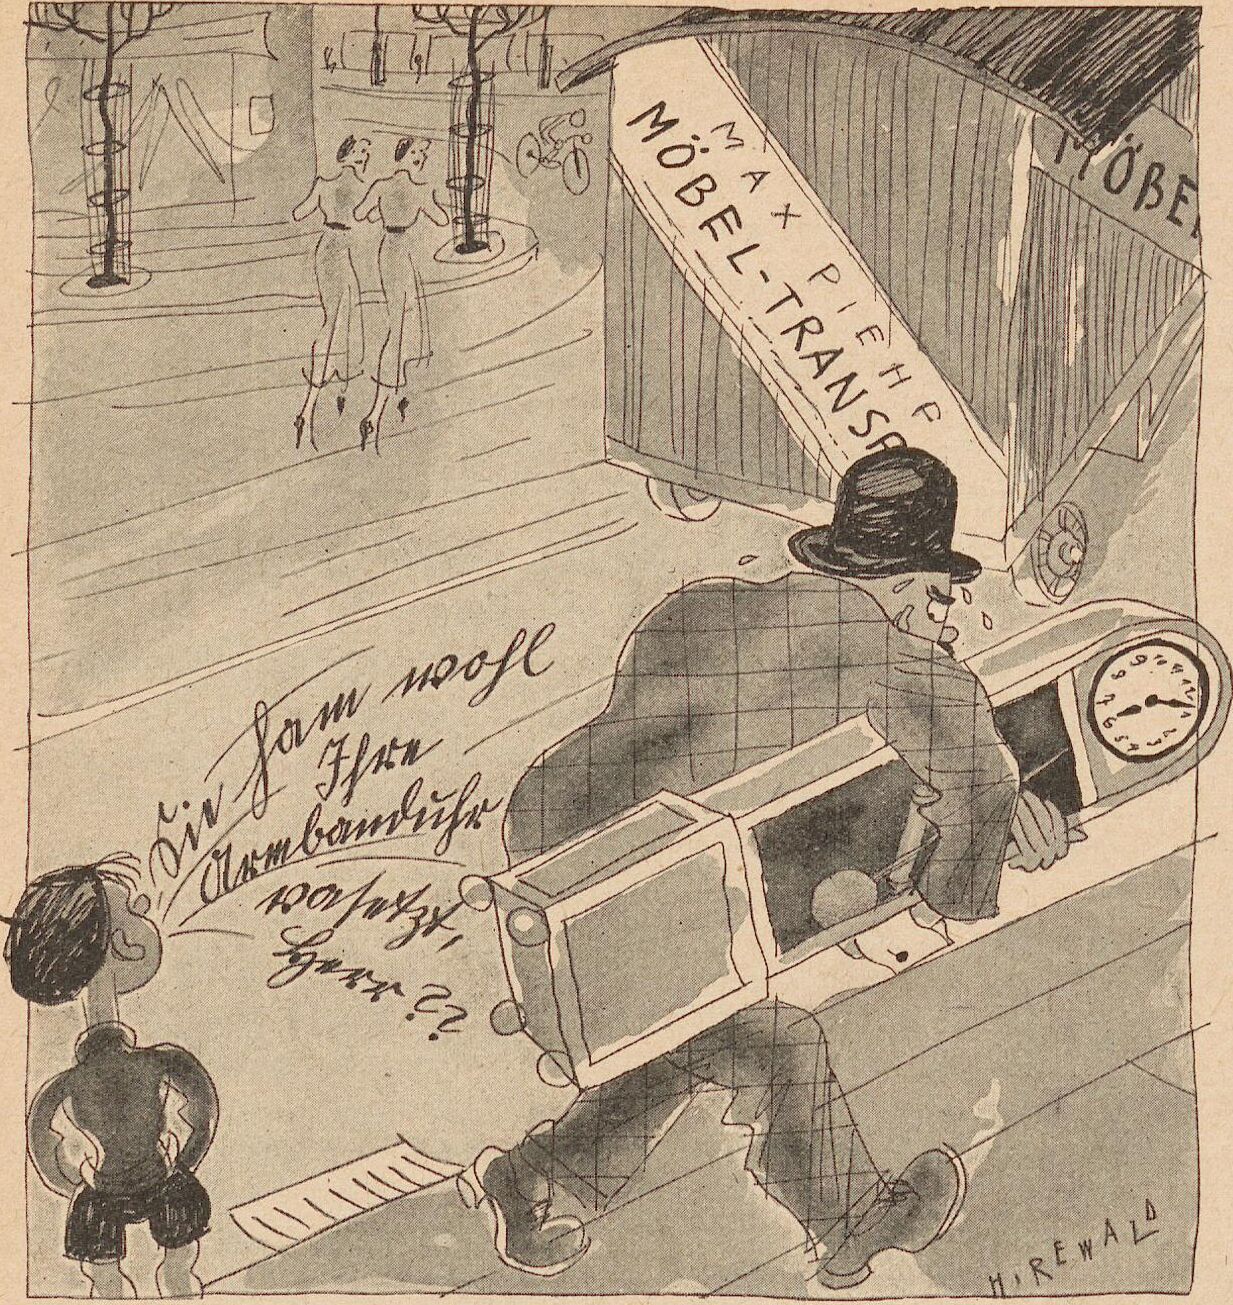 MAX PIEHF
MÖBEL-TRANSP
MÖBEL
Sie ham wohl
Ihre
Armbanduhr
vasetzt,
Herr ?!
H. REWALD